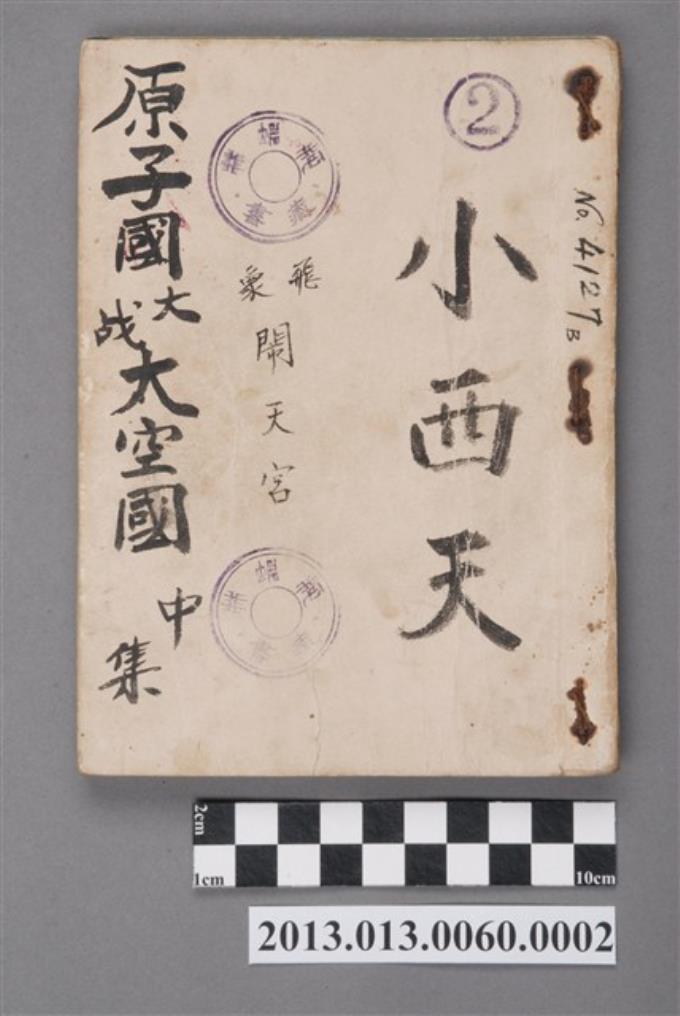 ②
小西天
No. 4127B
飛象
鬧天宮
原子國大战太空國
中集
2cm
1cm
10cm
2013.013.0060.0002